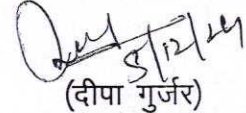 5/12/24
(दीपा गुर्जर)